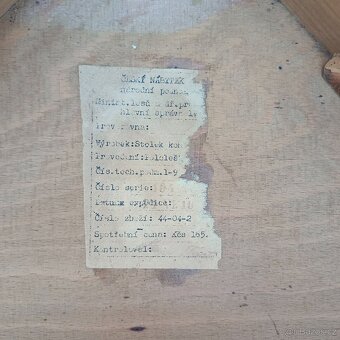 ČESKÝ NÁBYTEK
národní podni
Minist.lesů a dř.pr
hlavní správa
Provozovna:
Výrobek:Stolek kon
Provedení:Pololeš
Čís.tech.podm.1-9
Číslo serie:
Datum expedice:
Číslo zboží: 44-04-2
Spotřební cena: Kčs 185.
Kontroloval: